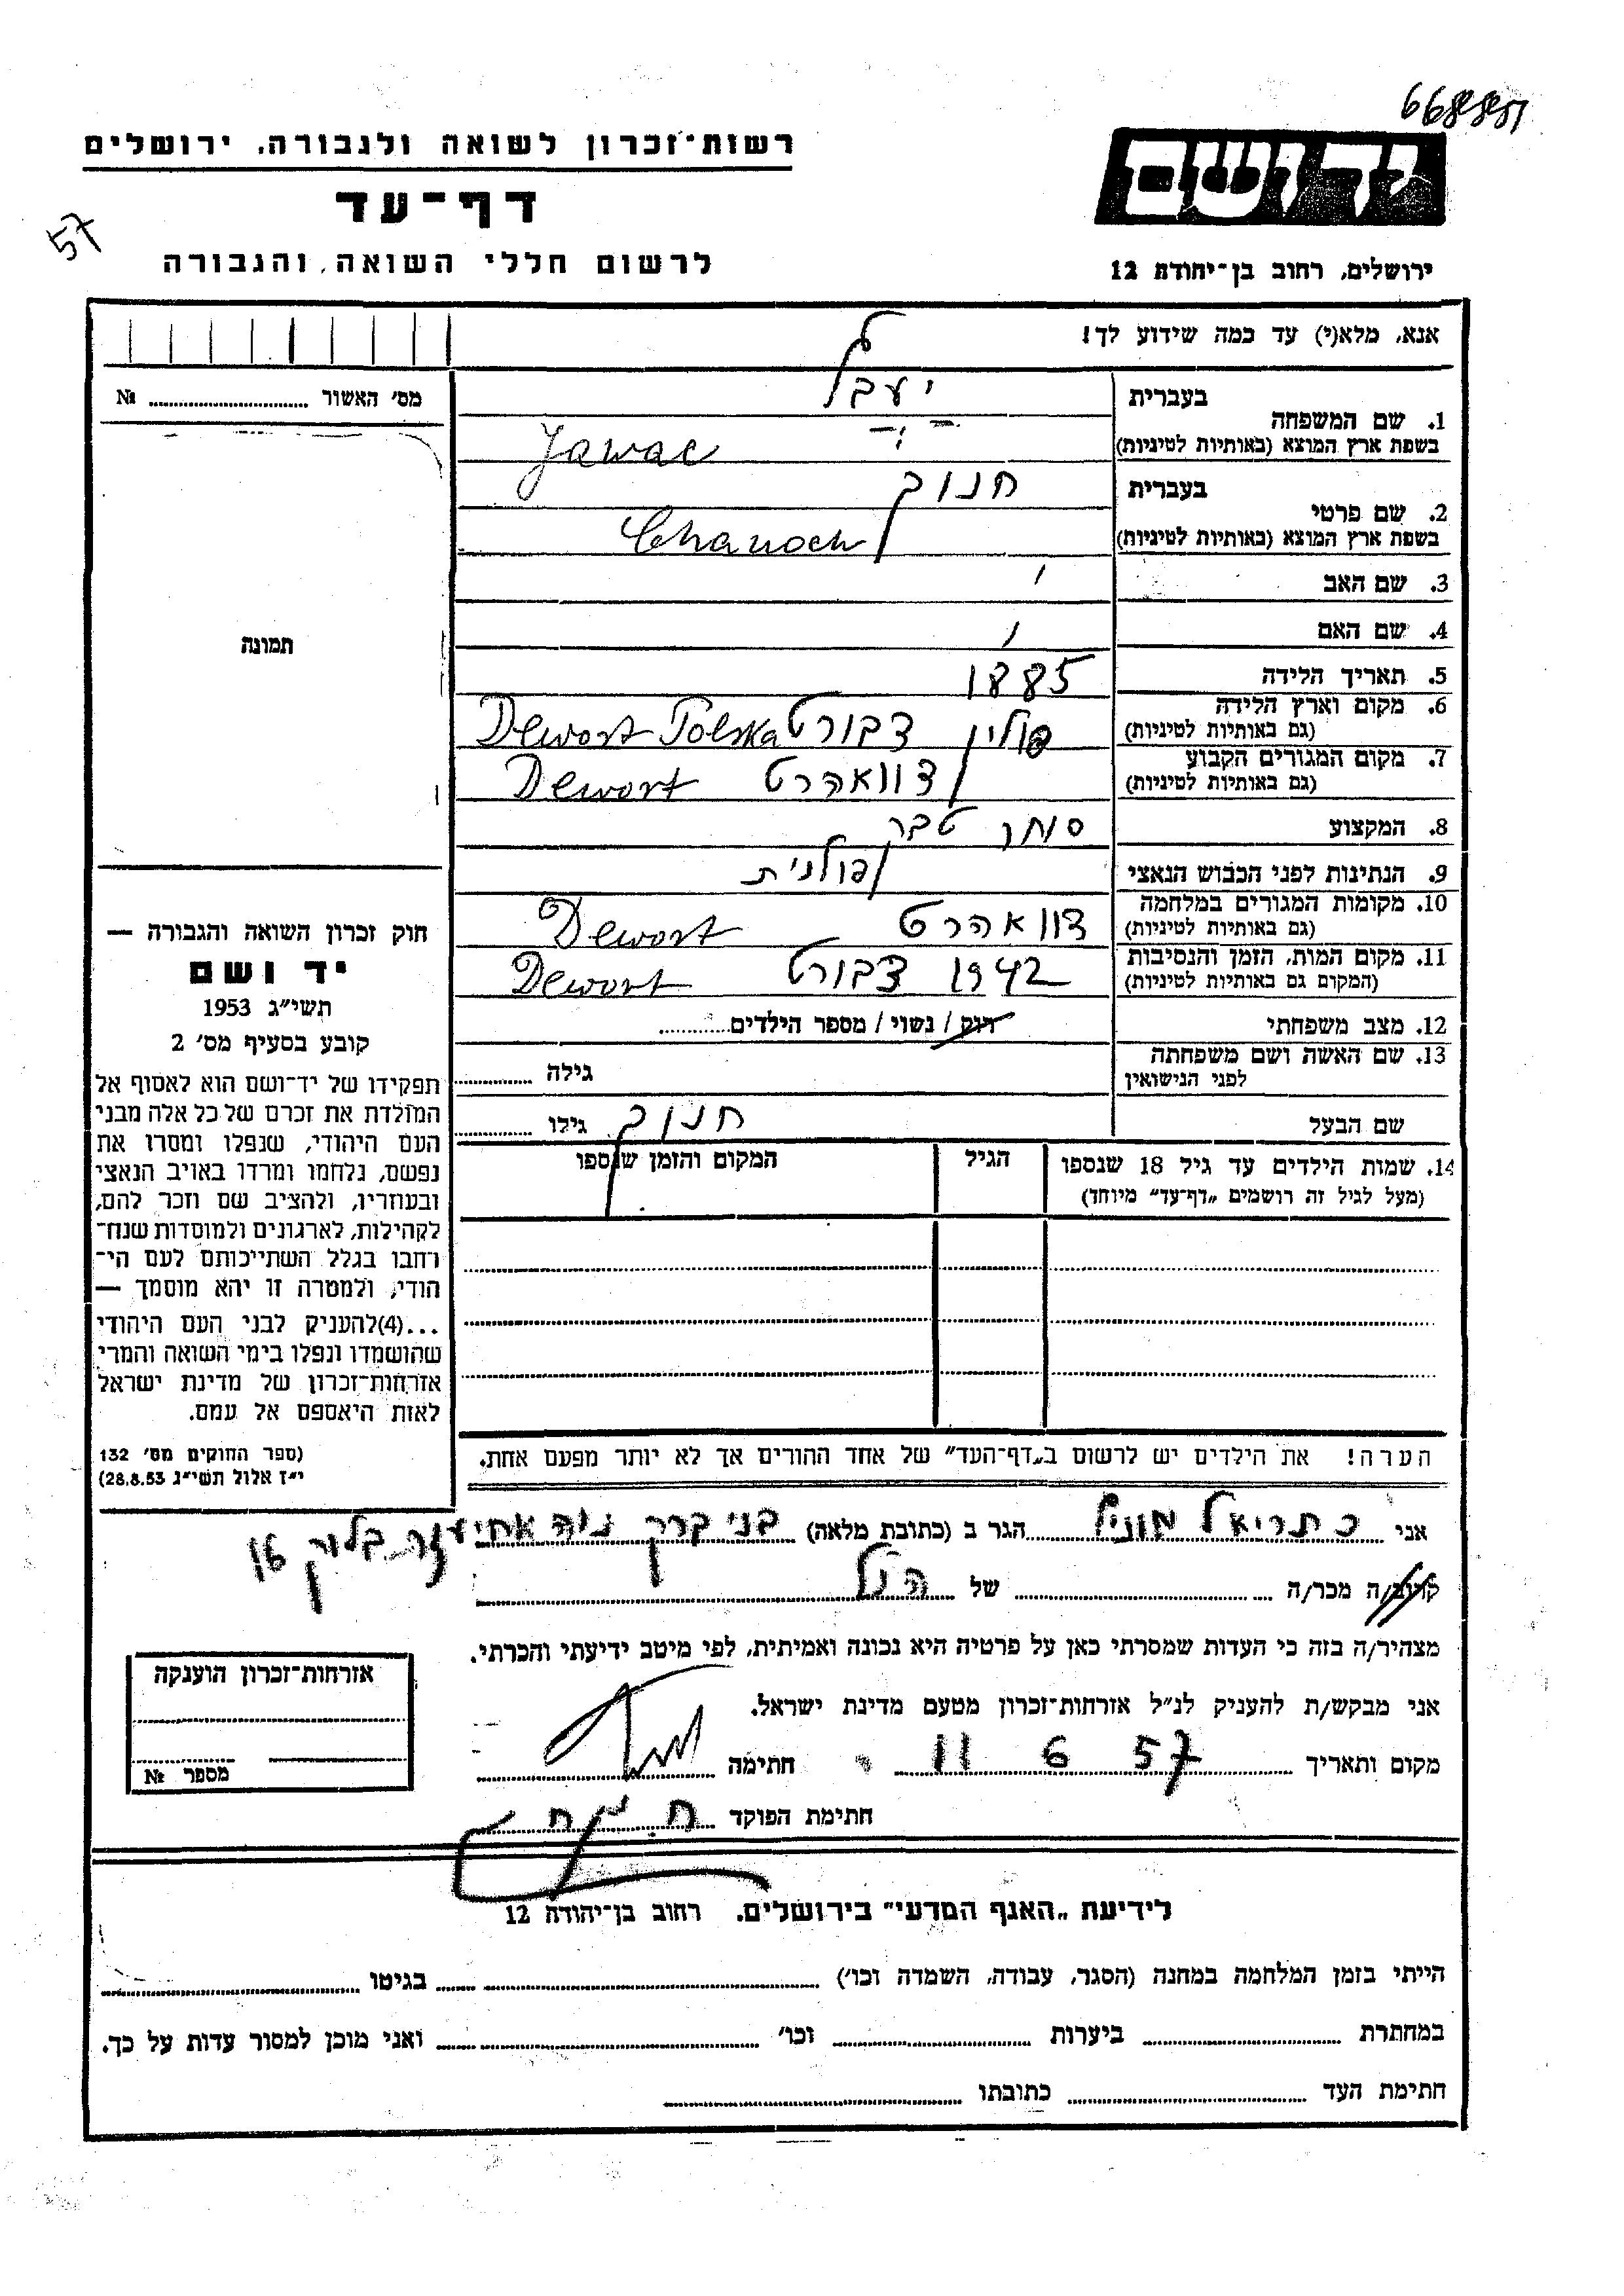 רשות־זכרון לשואה ולגבורה, ירושלים
יד ושם
דף־עד
57
לרשום חללי השואה והגבורה
ירושלים, רחוב בן־יהודה 12
אנא, מלא(י) עד כמה שידוע לך!
מס׳ האשור № 
1. שם המשפחה
בעברית
בשפת ארץ המוצא (באותיות לטיניות)
Jawac
2. שם פרטי
בעברית חנוך
בשפת ארץ המוצא (באותיות לטיניות) Chanoch
3. שם האב
4. שם האם
תמונה
5. תאריך הלידה 1885
6. מקום וארץ הלידה (גם באותיות לטיניות) פולין דבורט Dewort Polska
7. מקום המגורים הקבוע (גם באותיות לטיניות) דוואהרט Dewort
8. המקצוע סוחר
9. הנתינות לפני הכבוש הנאצי פולנית
10. מקומות המגורים במלחמה (גם באותיות לטיניות) דוואהרט Dewort
11. מקום המות, הזמן והנסיבות (המקום גם באותיות לטיניות) 1942 דבורט Dewort
12. מצב משפחתי רוק / נשוי / מספר הילדים
13. שם האשה ושם משפחתה לפני הנישואין גילה
שם הבעל חנוך גילו
14. שמות הילדים עד גיל 18 שנספו
(מעל לגיל זה רושמים „דף־עד" מיוחד)
הגיל
המקום והזמן שנספו
הערה! את הילדים יש לרשום ב„דף־העד" של אחד ההורים אך לא יותר מפעם אחת.
חוק זכרון השואה והגבורה —
יד ושם
תשי״ג 1953
קובע בסעיף מס׳ 2
תפקידו של יד־ושם הוא לאסוף אל
המולדת את זכרם של כל אלה מבני
העם היהודי, שנפלו ומסרו את
נפשם, נלחמו ומרדו באויב הנאצי
ובעוזריו, ולהציב שם וזכר להם,
לקהילות, לארגונים ולמוסדות שנח־
רחבו בגלל השתייכותם לעם הי־
הודי, ולמטרה זו יהא מוסמך —
...(4)להעניק לבני העם היהודי
שהושמדו ונפלו בימי השואה והמרי
אזרחות־זכרון של מדינת ישראל
לאות היאספם אל עמם.
(ספר החוקים מס׳ 132
י״ז אלול תשי״ג 28.8.53)
אני כתריאל הגר ב (כתובת מלאה) בני ברק נוה אחיעזר בלוק 16
קרוב/ה מכר/ה של הנ״ל
מצהיר/ה בזה כי העדות שמסרתי כאן על פרטיה היא נכונה ואמיתית, לפי מיטב ידיעתי והכרתי.
אני מבקש/ת להעניק לנ״ל אזרחות־זכרון מטעם מדינת ישראל.
מקום ותאריך 11 6 57 חתימה
חתימת הפוקד
אזרחות־זכרון הוענקה
מספר №
לידיעת „האגף המדעי" בירושלים. רחוב בן־יהודה 12
הייתי בזמן המלחמה במחנה (הסגר, עבודה, השמדה וכו׳) בגיטו
במחתרת ביערות וכו׳ ואני מוכן למסור עדות על כך.
חתימת העד כתובתו